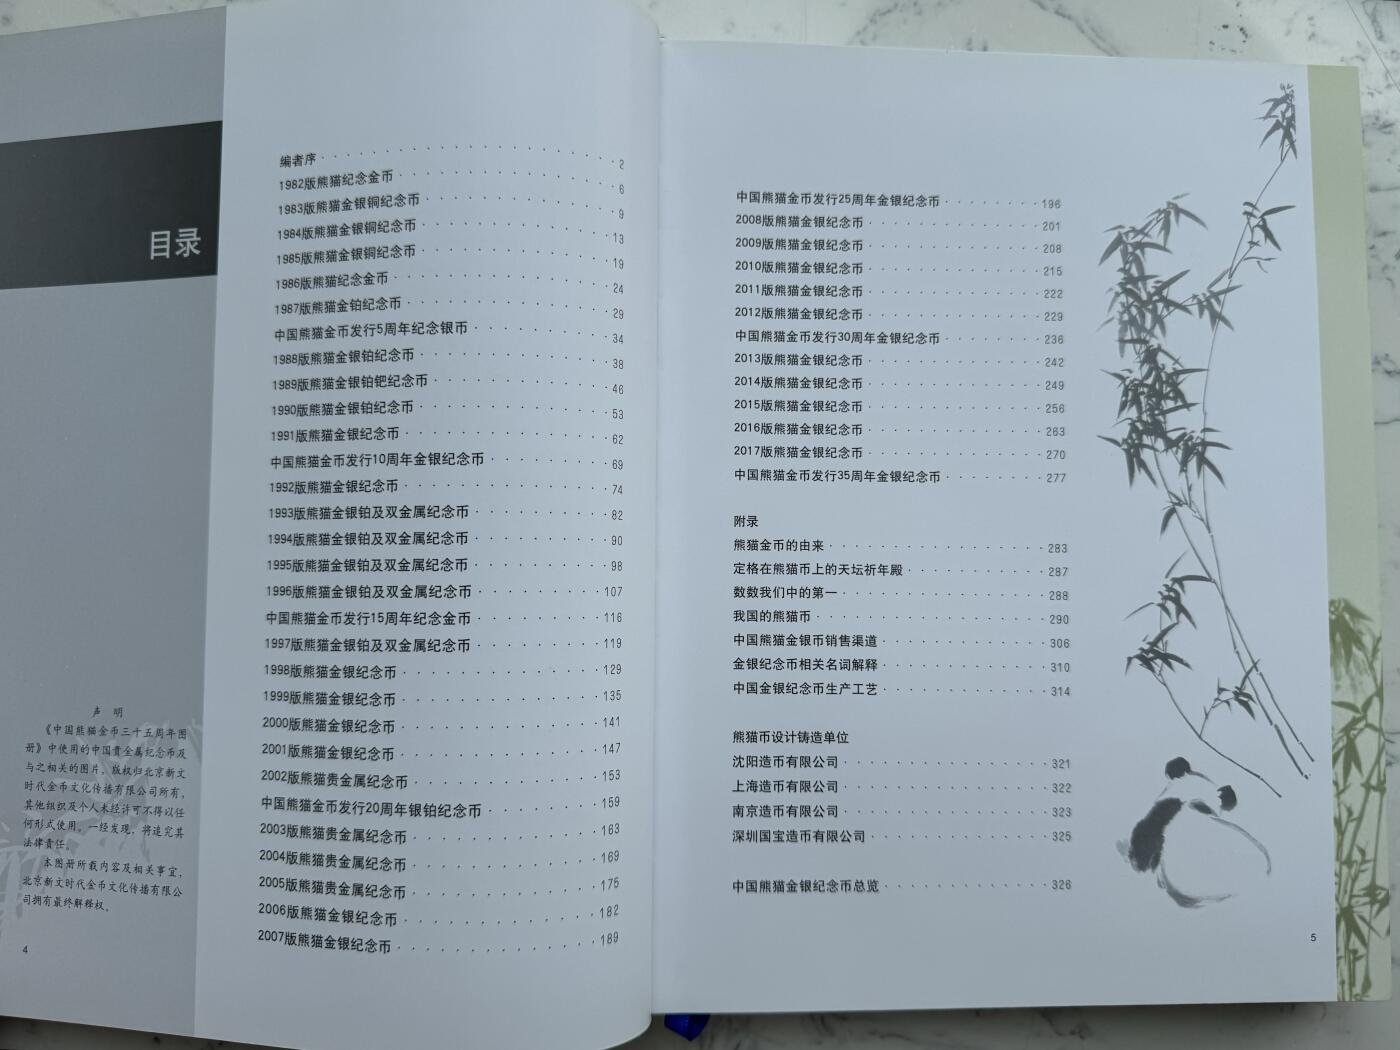 目录
声 明
《中国熊猫金币三十五周年图
册》中使用的中国贵金属纪念币及
与之相关的图片,版权归北京新文
时代金币文化传播有限公司所有,
其他组织及个人未经许可不得以任
何形式使用。一经发现,将追究其
法律责任。
本图册所载内容及相关事宜,
北京新文时代金币文化传播有限公
司拥有最终解释权。
4
编者序 2
1982版熊猫纪念金币 6
1983版熊猫金银铜纪念币 9
1984版熊猫金银铜纪念币 13
1985版熊猫金银铜纪念币 19
1986版熊猫纪念金币 24
1987版熊猫金铂纪念币 29
中国熊猫金币发行5周年纪念银币 34
1988版熊猫金银铂纪念币 38
1989版熊猫金银铂钯纪念币 46
1990版熊猫金银铂纪念币 53
1991版熊猫金银纪念币 62
中国熊猫金币发行10周年金银纪念币 69
1992版熊猫金银纪念币 74
1993版熊猫金银铂及双金属纪念币 82
1994版熊猫金银铂及双金属纪念币 90
1995版熊猫金银铂及双金属纪念币 98
1996版熊猫金银铂及双金属纪念币 107
中国熊猫金币发行15周年纪念金币 116
1997版熊猫金银铂及双金属纪念币 119
1998版熊猫金银纪念币 129
1999版熊猫金银纪念币 135
2000版熊猫金银纪念币 141
2001版熊猫金银纪念币 147
2002版熊猫贵金属纪念币 153
中国熊猫金币发行20周年银铂纪念币 159
2003版熊猫贵金属纪念币 163
2004版熊猫贵金属纪念币 169
2005版熊猫贵金属纪念币 175
2006版熊猫金银纪念币 182
2007版熊猫金银纪念币 189
中国熊猫金币发行25周年金银纪念币 196
2008版熊猫金银纪念币 201
2009版熊猫金银纪念币 208
2010版熊猫金银纪念币 215
2011版熊猫金银纪念币 222
2012版熊猫金银纪念币 229
中国熊猫金币发行30周年金银纪念币 236
2013版熊猫金银纪念币 242
2014版熊猫金银纪念币 249
2015版熊猫金银纪念币 256
2016版熊猫金银纪念币 263
2017版熊猫金银纪念币 270
中国熊猫金币发行35周年金银纪念币 277
附录
熊猫金币的由来 283
定格在熊猫币上的天坛祈年殿 287
数数我们中的第一 288
我国的熊猫币 290
中国熊猫金银币销售渠道 306
金银纪念币相关名词解释 310
中国金银纪念币生产工艺 314
熊猫币设计铸造单位
沈阳造币有限公司 321
上海造币有限公司 322
南京造币有限公司 323
深圳国宝造币有限公司 325
中国熊猫金银纪念币总览 326
5